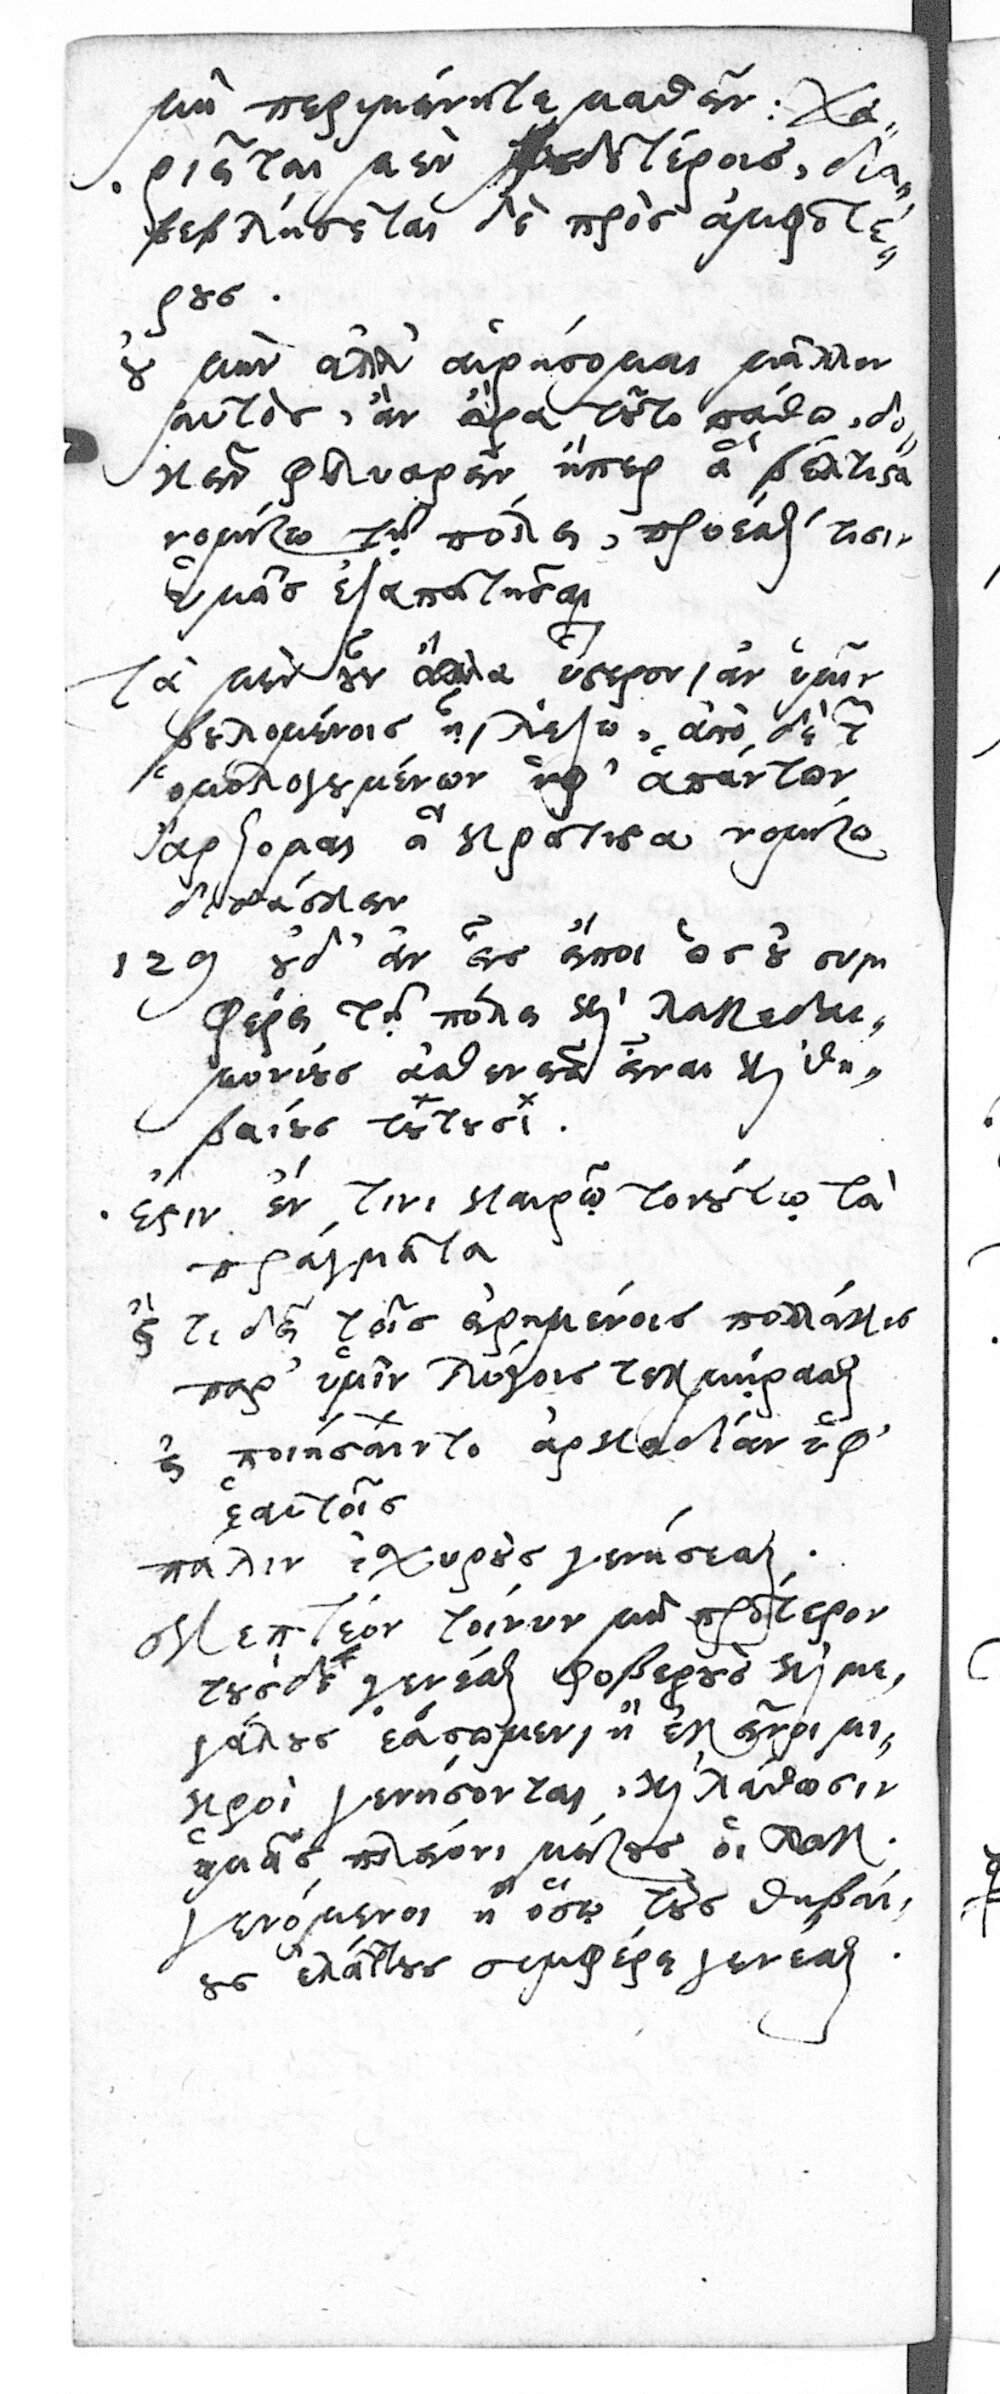 μὴ περιμένητε μαθεῖν : χα„
. ριεῖται μὲν οὐδετέροις, δια„
βεβλήσεται δὲ πρὸς ἀμφοτέ„
ρους .
οὐ μὴν ἀλλ' αἱρήσομαι μᾶλλον
αὐτὸς, ἂν ἄρα τοῦτο πάθω, δο„
κεῖν φλυαρεῖν ἤπερ ἃ βέλτιστα
νομίζω τῇ πόλει, προέσθαι τισιν
ὑμᾶς ἐξαπατῆσαι
τὰ μὲν οὖν ἄλλα ὕστερον, ἂν ὑμῖν
βουλομένοις ᾖ, λέξω, ἀπὸ δὲ τῶν
ὁμολογουμένων ὑφ' ἁπάντων
ἄρξομαι ἃ κράτιστα νομίζω
διδάσκειν
129 οὐδ' ἂν εἷς εἴποι ὡς οὐ συμ
φέρει τῇ πόλει καὶ λακεδαι„
μονίους ἀσθενεῖς εἶναι καὶ θη„
βαίους τουτουσί .
. ἔστιν ἔν τινι καιρῷ τοιούτῳ τὰ
πράγματα
εἴ τι δεῖ τοῖς εἰρημένοις πολλάκις
παρ' ὑμῖν λόγοις τεκμήρασθαι
εἰ ποιήσαιντο ἀρκαδίαν ὑφ'
ἑαυτοῖς
πάλιν ἰσχυροὺς γενήσεσθαι .
σκεπτέον τοίνυν μὴ πρότερον
τούσδε γενέσθαι φοβεροὺς καὶ με„
γάλους ἐάσωμεν, ἢ ἐκεῖνοι μι„
κροὶ γενήσονται, καὶ λάθωσιν
ἡμᾶς πλείονι μείζους οἱ λακ.
γενόμενοι ἢ ὅσῳ τοὺς θηβαί„
ους ἐλάττους συμφέρει γενέσθαι .